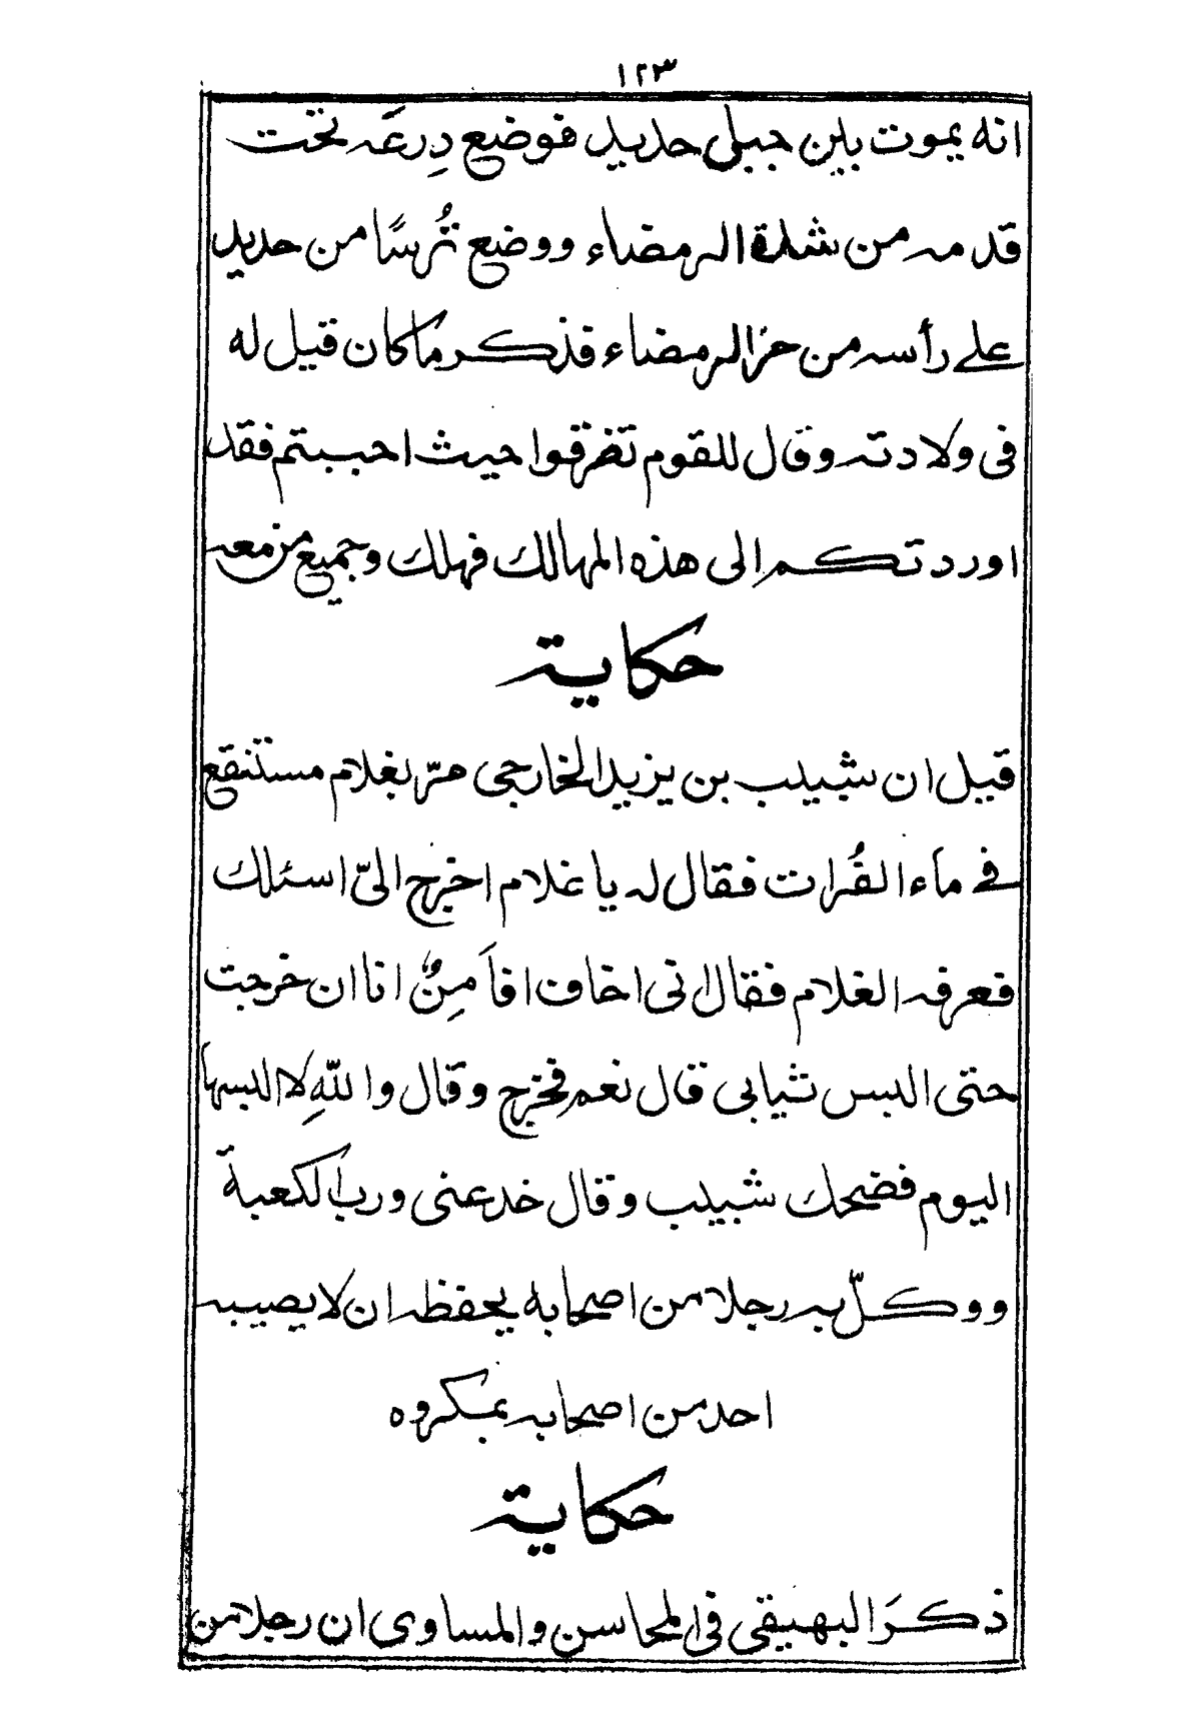 ١٢٣
انه يموت بين جبلى حديد فوضع دِرعَه تحت
قدمه من شدة الرمضاء ووضع تُرسًا من حديد
على رأسه من حرّ الرمضاء فذكر ما كان قيل له
فى ولادته وقال للقوم تفرقوا حيث احببتم فقد
اوردتكم الى هذه المهالك فهلك وجميع من معه
حكاية
قيل ان شبيب بن يزيد الخارجى مرّ بغلام مستنقع
فى ماء الفُرات فقال له يا غلام اخرج الىّ اسئلك
فعرفه الغلام فقال انى اخاف افاَمِنٌ انا ان خرجت
حتى البس ثيابى قال نعم فخرج وقال واللّهِ لا البسها
اليوم فضحك شبيب وقال خدعنى ورب الكعبة
ووكلّ به رجلا من اصحابه يحفظه ان لا يصيبه
احد من اصحابه بمكروه
حكاية
ذكرَ البهيقى فى المحاسن والمساوى ان رجلا من